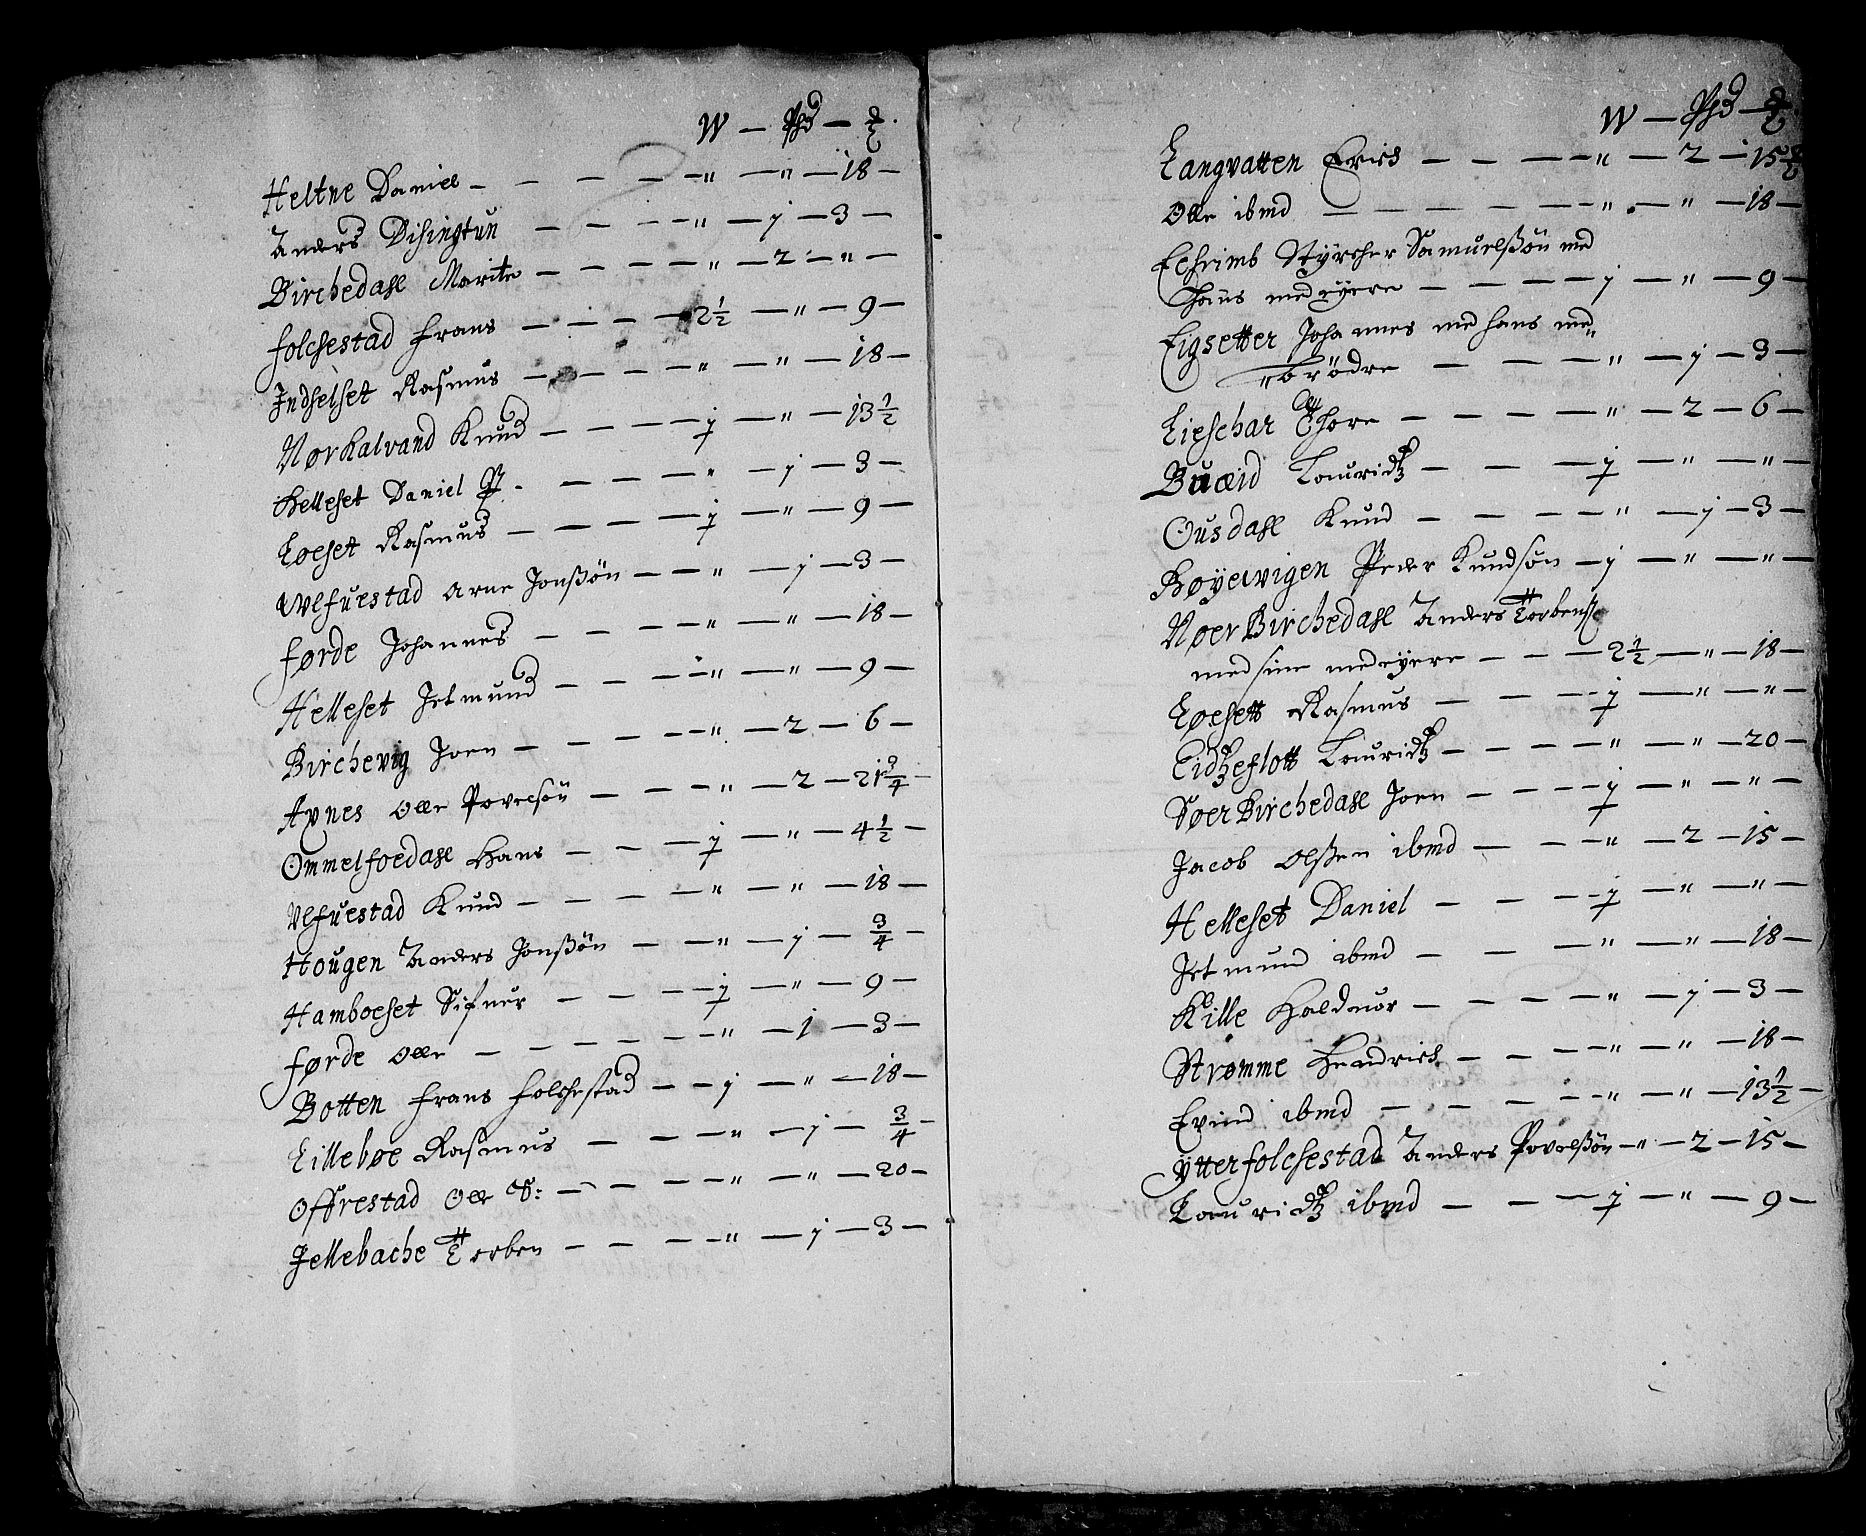 W — Pd — ℔.
Heltne Daniel — — — — — " — " — 18 —
Anders Disingtun — — — — " — j — 3 —
Birchedahl Marite — — — — " — 2 — " —
folchestad frans — — — — 2½ — " — 9 —
Indselset Rasmus — — — — " — " — 18 —
Nørkalvand Knud — — — — j — " — 13½
Helleset Daniel P. — — — — " — j — 3 —
Løeset Rasmus — — — — j — " — 9 —
Wlfuestad Arne Jonßøn — — " — j — 3 —
førde Johannes — — — — " — " — 18 —
Helleset Jetmund — — — — " — " — 9 —
Birchevig Joen — — — — — " — 2 — 6 —
Aynes Olle Povelsøn — — — " — 2 — 21¾ —
Ommelfoedahl Hans — — — j — " — 4½ —
Vlfuestad Knud — — — — " — " — 18 —
Hougen Anders Jonßøn — — " — j — ¾ —
Hamboeset Sifuer — — — — j — " — 9 —
førde Olle — — — — — " — 1 — 3 —
Botten frans folchestad — — j — " — 18 —
Lillebøe Rasmus — — — — " — j — ¾ —
Offrestad Olle S: — — — — " — " — 20 —
Jellebache Torben — — — — " — j — 3 —
W — Pd — ℔.
Langvatten Erich — — — — " — 2 — 15½
Olle ibmd — — — — — — " — " — 18 —
Ephrimb Styrcher Samuelßøn med
Hans medeyere — — — — j — " — 9 —
Eigsetter Johannes med hans med"
"brødre — — — — " — j — 3 —
Lieschar Thore — — — — " — 2 — 6 —
Buæid Lauridtz — — — j — " — " —
Ousdahl Knud — — — — " — j — 3 —
Høyevigen Peder Knudsøn — j — " — " —
Noer Birchedahl Anders Torbenß
med sine medeyere — — — 2½ — " — 18 —
Løesett Rasmus — — — j — " — " —
Eidtzeflott Lauridtz — — — — " — " — 20 —
Søer Birchedahl Joen — — — — j — " — " —
Jacob Olßen ibmd — — — " — 2 — 15 —
Helleset Daniel — — — — j — " — " —
Jetmund ibmd — — — " — " — 18 —
Kille Halduor — — — — " — j — 3 —
Strømme Hendrich — — — — " — " — 18 —
Evind ibmd — — — — — " — " — 13½ —
Ytterfolchestad Anders Povelßøn — " — 2 — 15 —
Lauridtz ibmd — — — j — " — 9 —